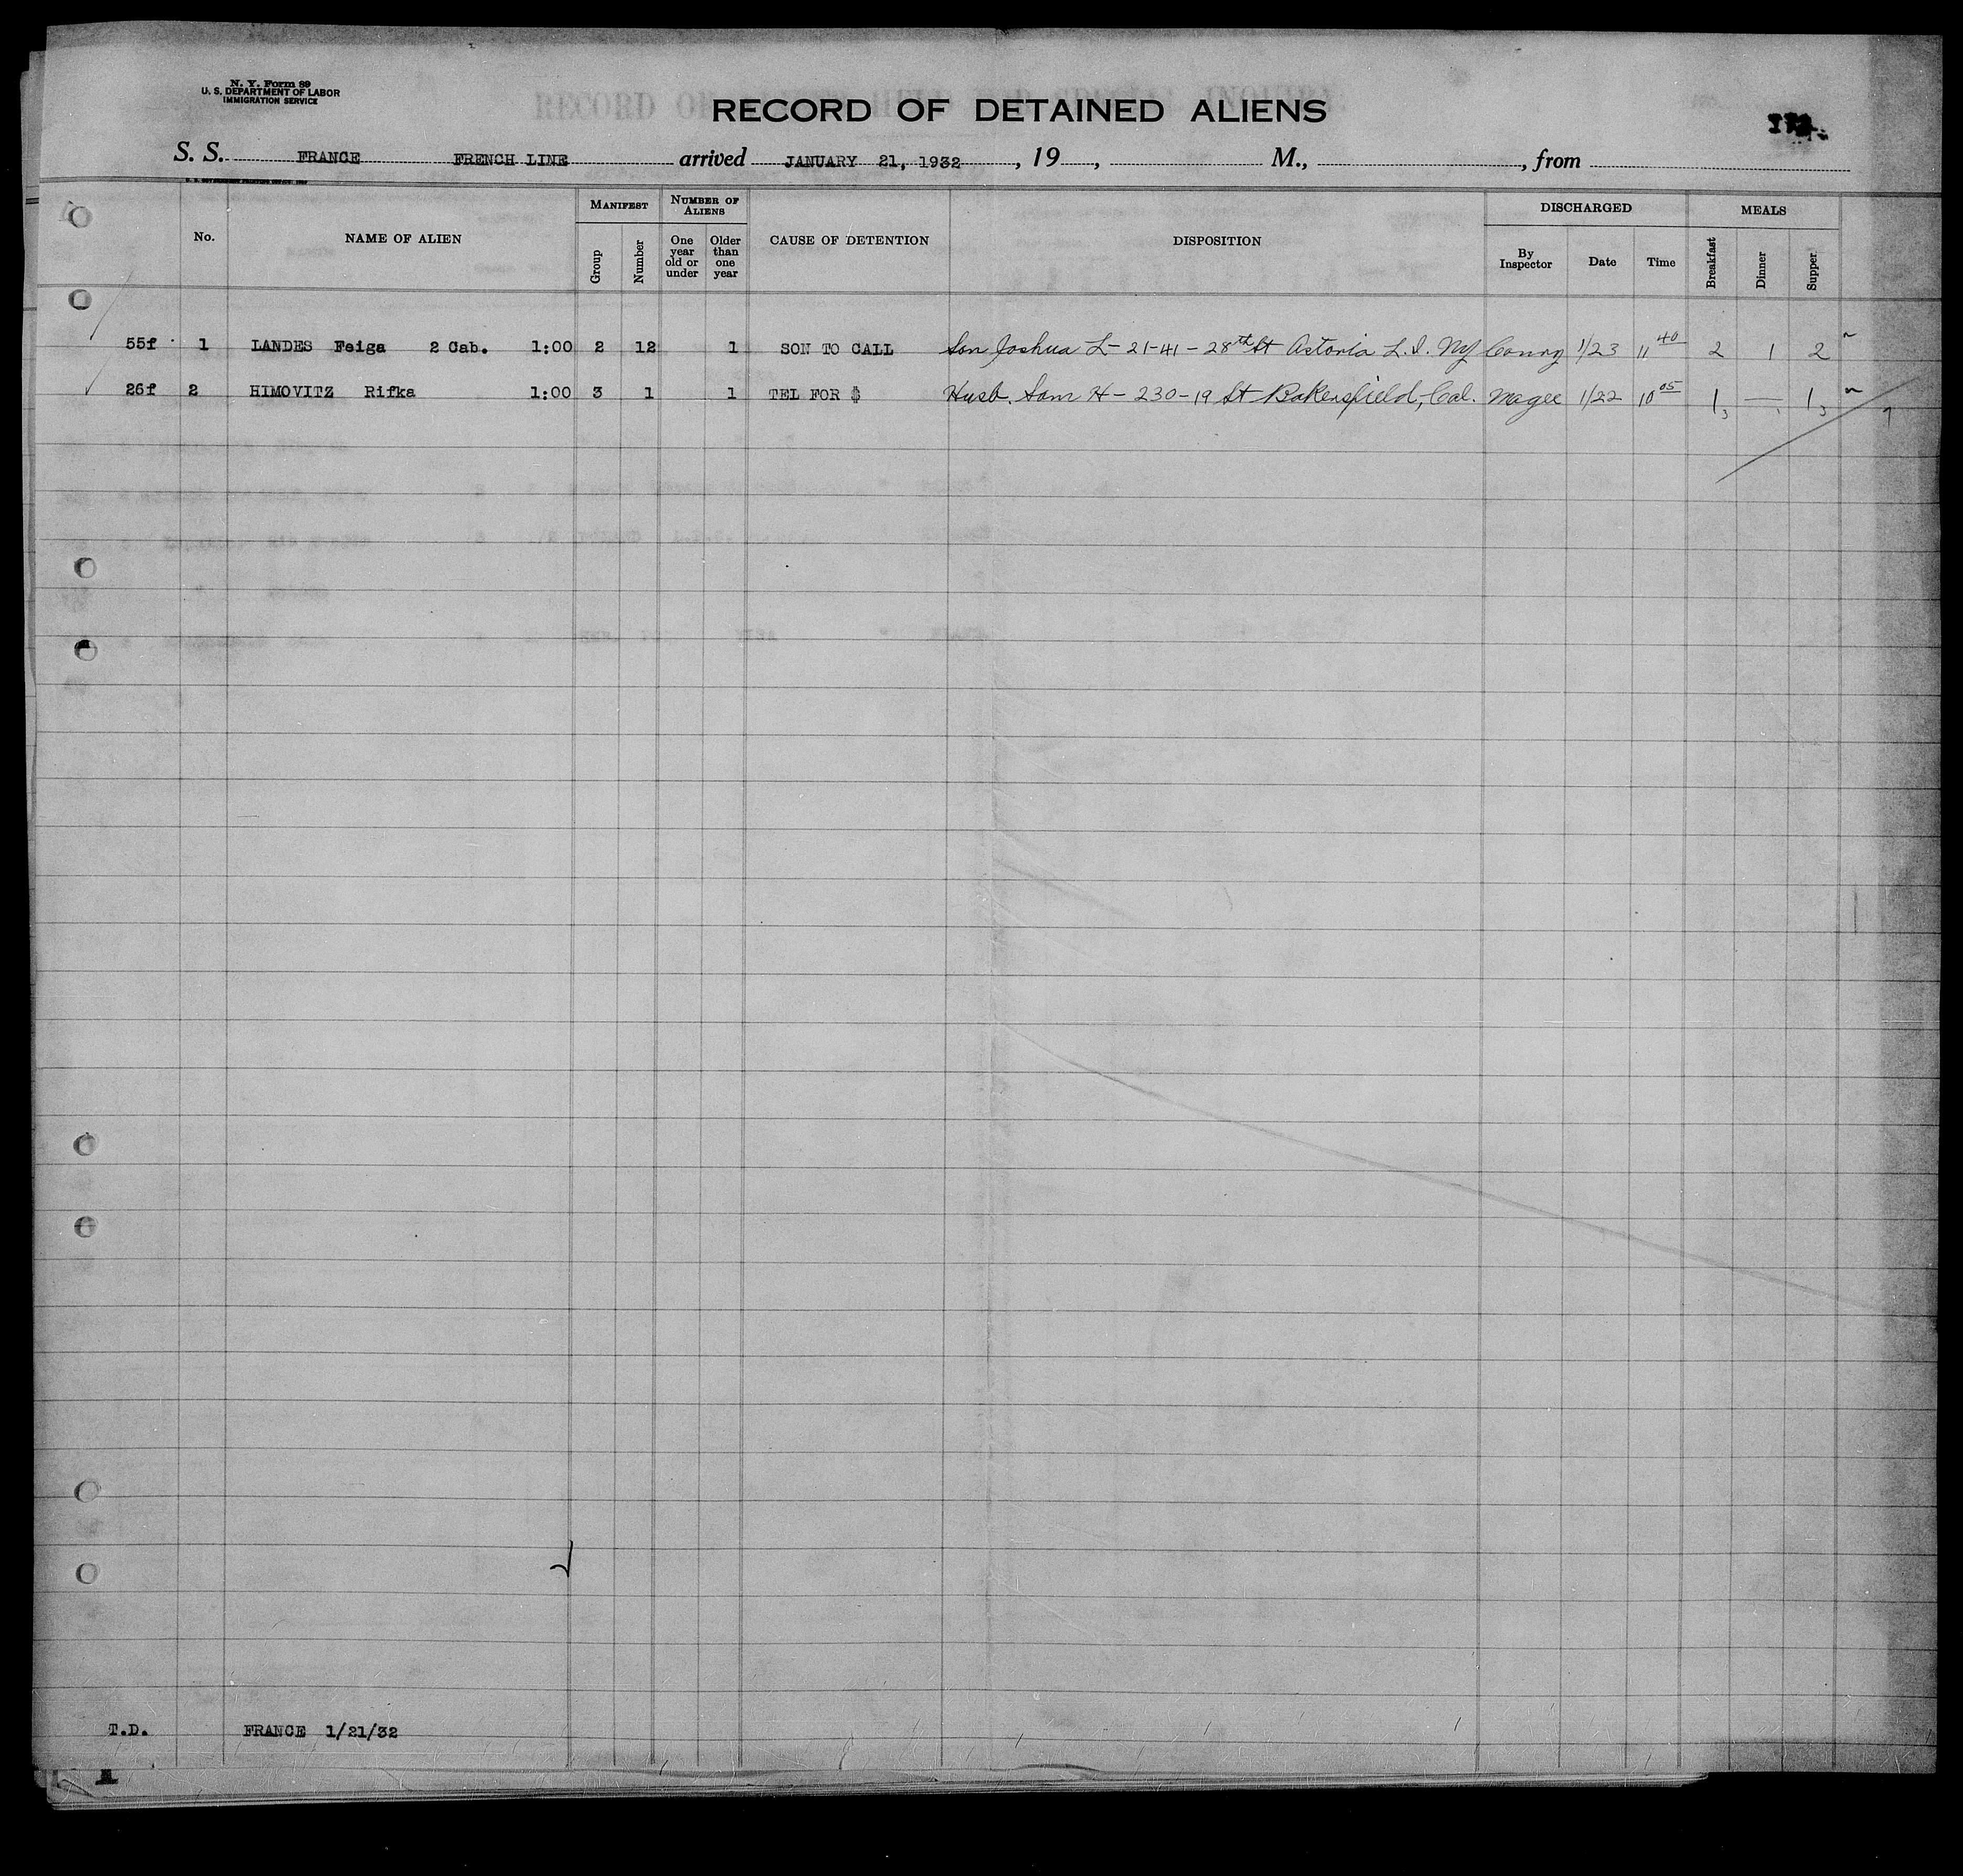 N. Y. Form 89
U. S. DEPARTMENT OF LABOR
IMMIGRATION SERVICE
RECORD OF DETAINED ALIENS
S. S. FRANCE FRENCH LINE arrived JANUARY 21, 1932, 19, M., , from
No. NAME OF ALIEN MANIFEST Group Number NUMBER OF ALIENS One year old or under Older than one year CAUSE OF DETENTION DISPOSITION DISCHARGED By Inspector Date Time MEALS Breakfast Dinner Supper
55f 1 LANDES Feiga 2 Cab. 1:00 2 12 1 SON TO CALL Son Joshua L- 21-41-28th St Astoria L.I. NY Conry 1/23 11 40 2 1 2
26f 2 HIMOVITZ Rifka 1:00 3 1 1 TEL FOR $ Husb. Sam H- 230-19 St Bakersfield, Cal. Magee 1/22 10 05 1 — 1
3 3
T.D. FRANCE 1/21/32